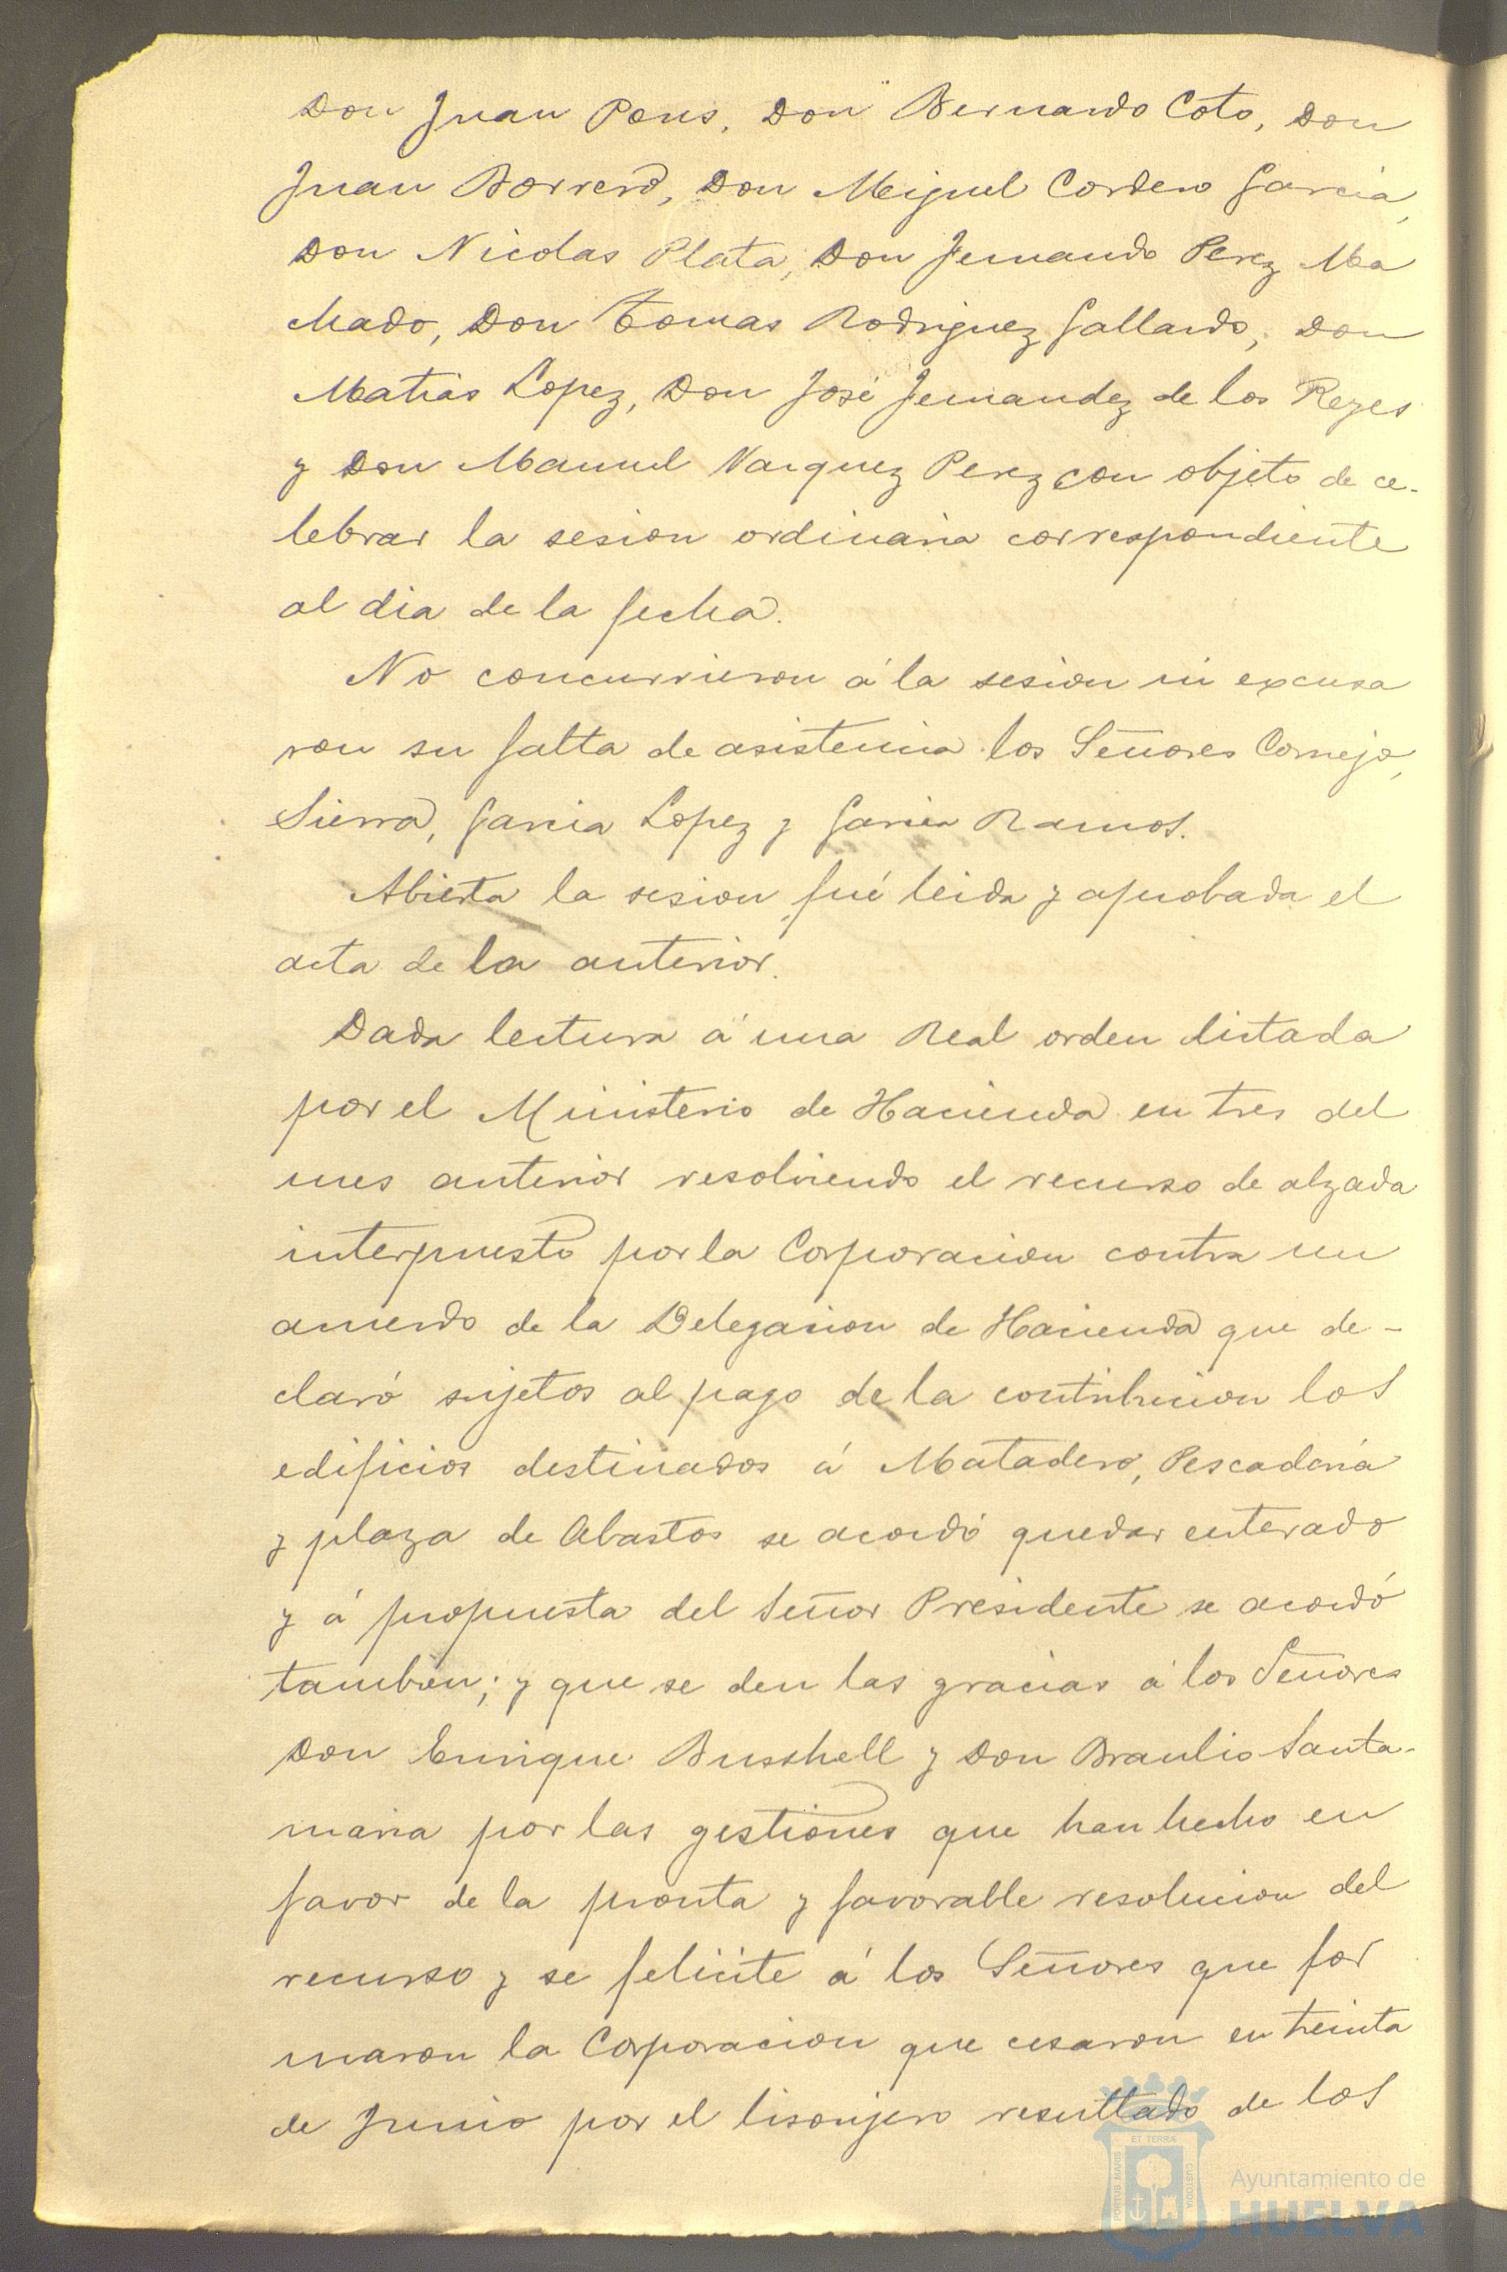 Don Juan Pons, Don Bernardo Coto, Don
Juan Borrero, Don Miguel Cordero Garcia,
Don Nicolas Plata, Don Fernando Perez Ma
chado, Don Tomas Rodriguez Gallardo, Don
Matias Lopez, Don José Fernandez de los Reyes
y Don Manuel Vazquez Perez con objeto de ce-
lebrar la sesion ordinaria correspondiente
al dia de la fecha.
No concurrieron á la sesion ni excusa
ron su falta de asistencia los Señores Cornejo,
Sierra, Garcia Lopez y Garcia Ramos.
Abierta la sesion fué leida y aprobada el
acta de la anterior.
Dada lectura á una Real orden dictada
por el Ministerio de Hacienda en tres del
mes anterior resolviendo el recurso de alzada
interpuesto por la Corporacion contra un
acuerdo de la Delegacion de Hacienda que de-
claró sujetos al pago de la contribucion los
edificios destinados á Matadero, Pescaderia
y plaza de Abastos se acordó quedar enterado
y á propuesta del Señor Presidente se acordó
tambien; y que se den las gracias á los Señores
Don Enrique Busshell y Don Braulio Santa-
maria por las gestiones que han hecho en
favor de la pronta y favorable resolucion del
recurso y se felicite á los Señores que for
maron la Corporacion que cesaron en treinta
de Junio por el lisonjero resultado de los
ET TERRA
PORTUS MARIS
CUSTODIA
Ayuntamiento de
HUELVA